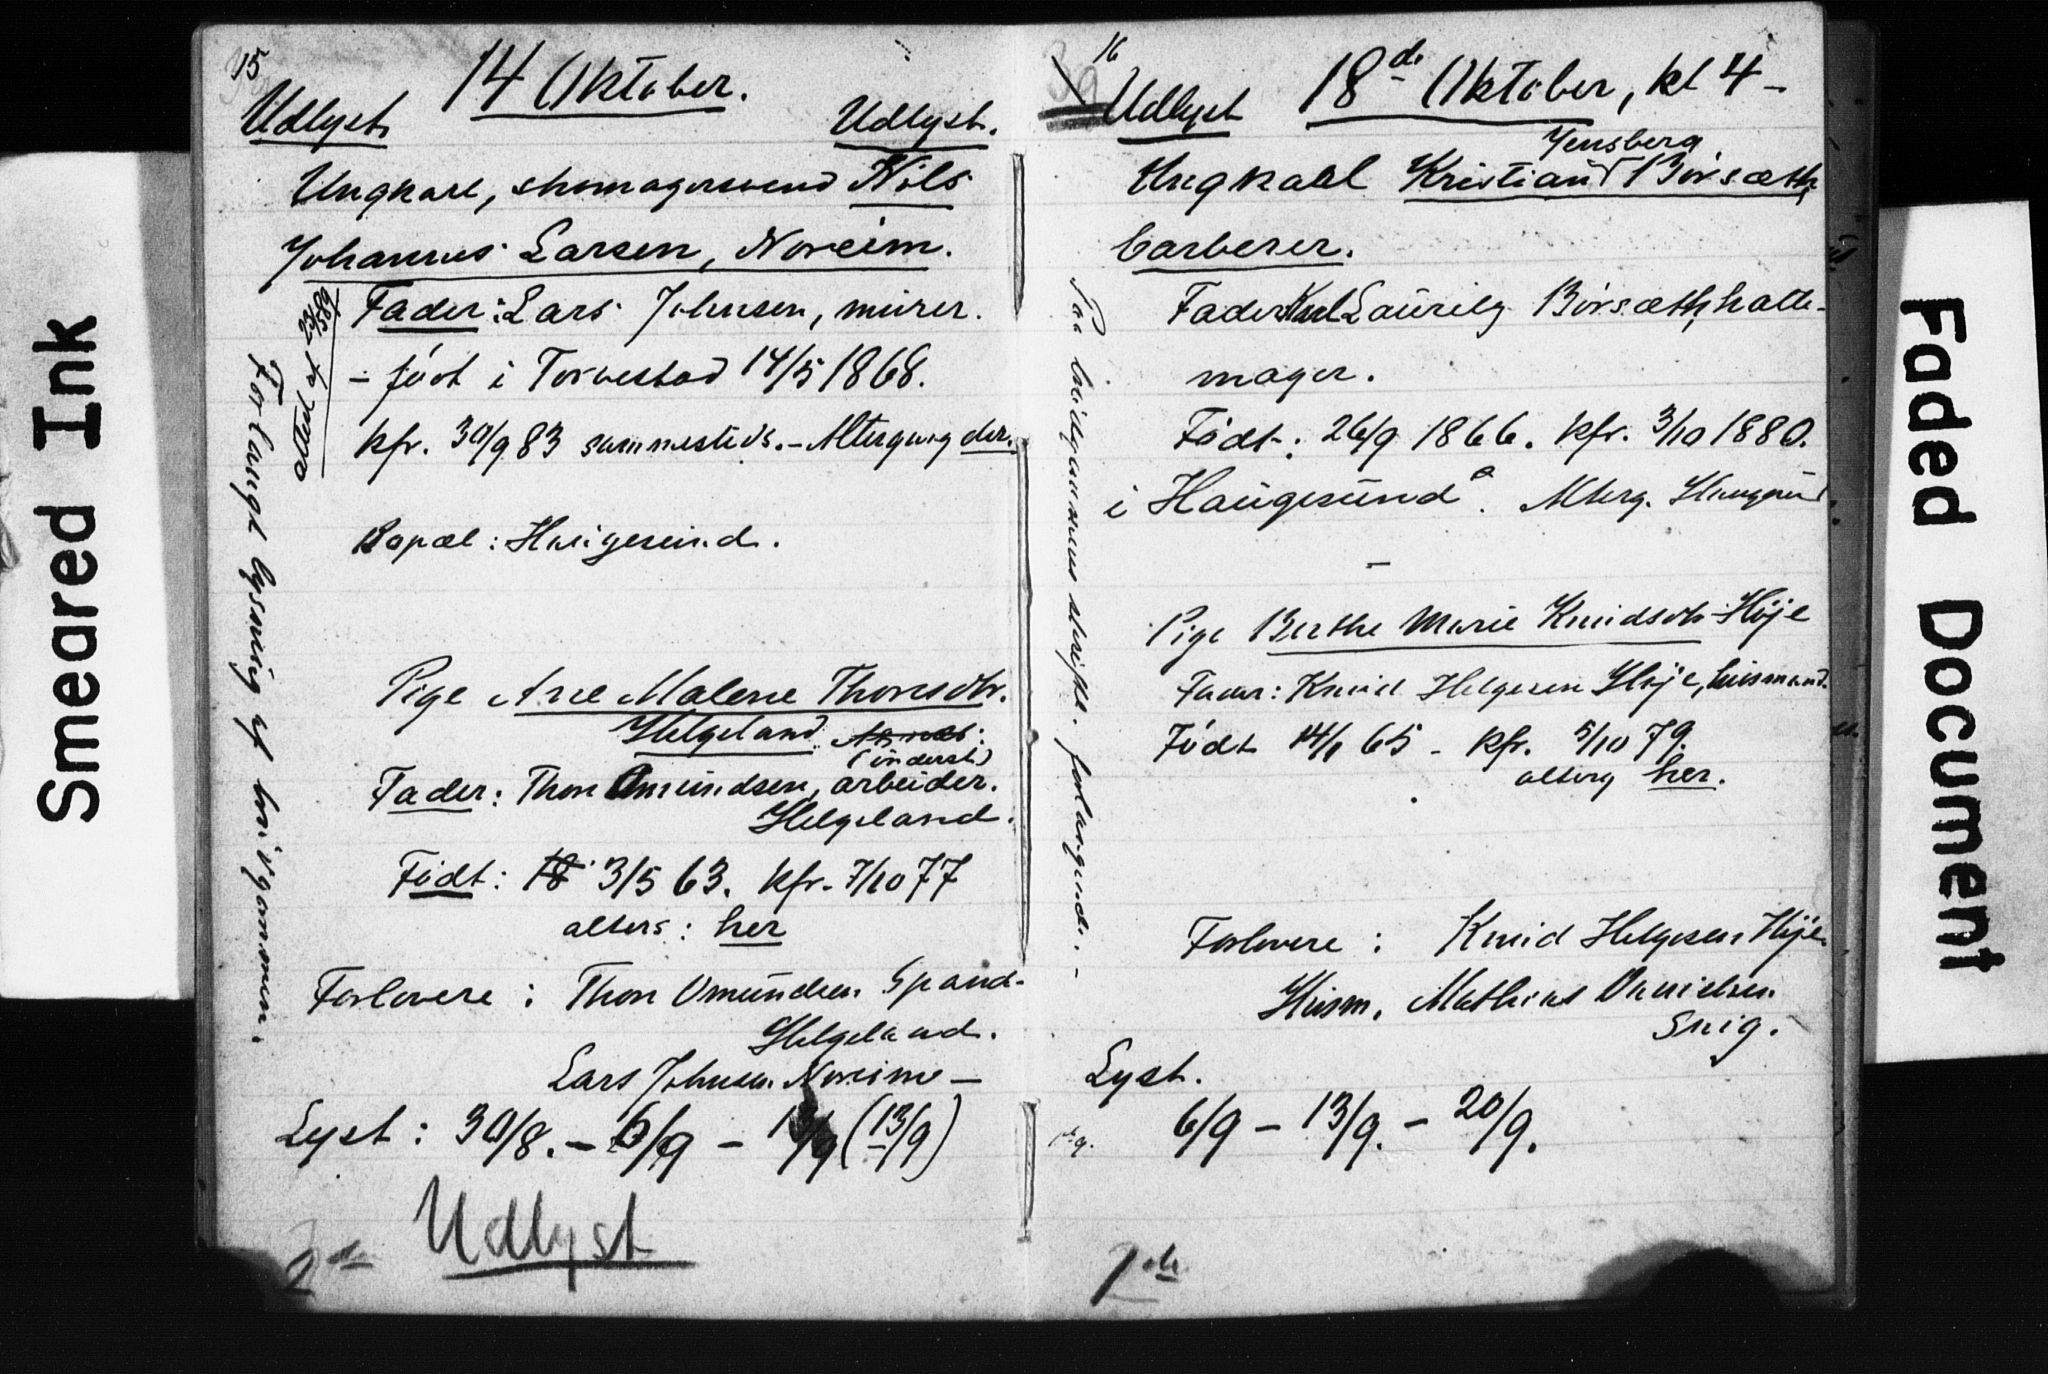 Smeared Ink
15
14 Oktober.
Udlyst. Udlyst.
Ungkarl, skomagersvend Nils
Johannes Larsen, Noreim.
Fader: Lars Johnsen, murer.
- født i Torvestad 14/5 1868.
kfr. 30/9 83 sammesteds. - Altergang der.
Bopæl: Haugesund.
Pige Ane Malene Thoresdtr.
Helgeland
(inderst)
Fader: Thore Omundsen, arbeider.
Helgeland.
Født: 18 3/5 63. kfr. 7/10 77
alters: her
Forlovere: Thore Omundsen Spand-
Helgeland.
Lars Johnsen Noreim -
Lyst: 30/8. - 6/9 - 13/9 (13/9)
Udlyst
2de
attest af 23/5 89
Forlangt lysning af brudgommen.
16
Udlyst 18de Oktober, kl 4 -
Jensberg
Ungkarl Kristian Børsæth
barberer.
Fader Karl Lauritz Børsæth, hatte-
mager.
Født: 26/9 1866. kfr. 3/10 1880.
i Haugesund. Alterg. Haugesund
-
Pige Berthe Marie Knudsdtr Høje
Fader: Knud Helgesen Høje, husmand.
Født 14/1 65 - kfr. 5/10 79.
alterg her.
Forlovere: Knud Helgesen Høje
Husm. Mathias Danielsen
Snig.
Lyst.
6/9 - 13/9. - 20/9.
1ste
Paa brudgommens skriftl. forlangende. -
Faded Document